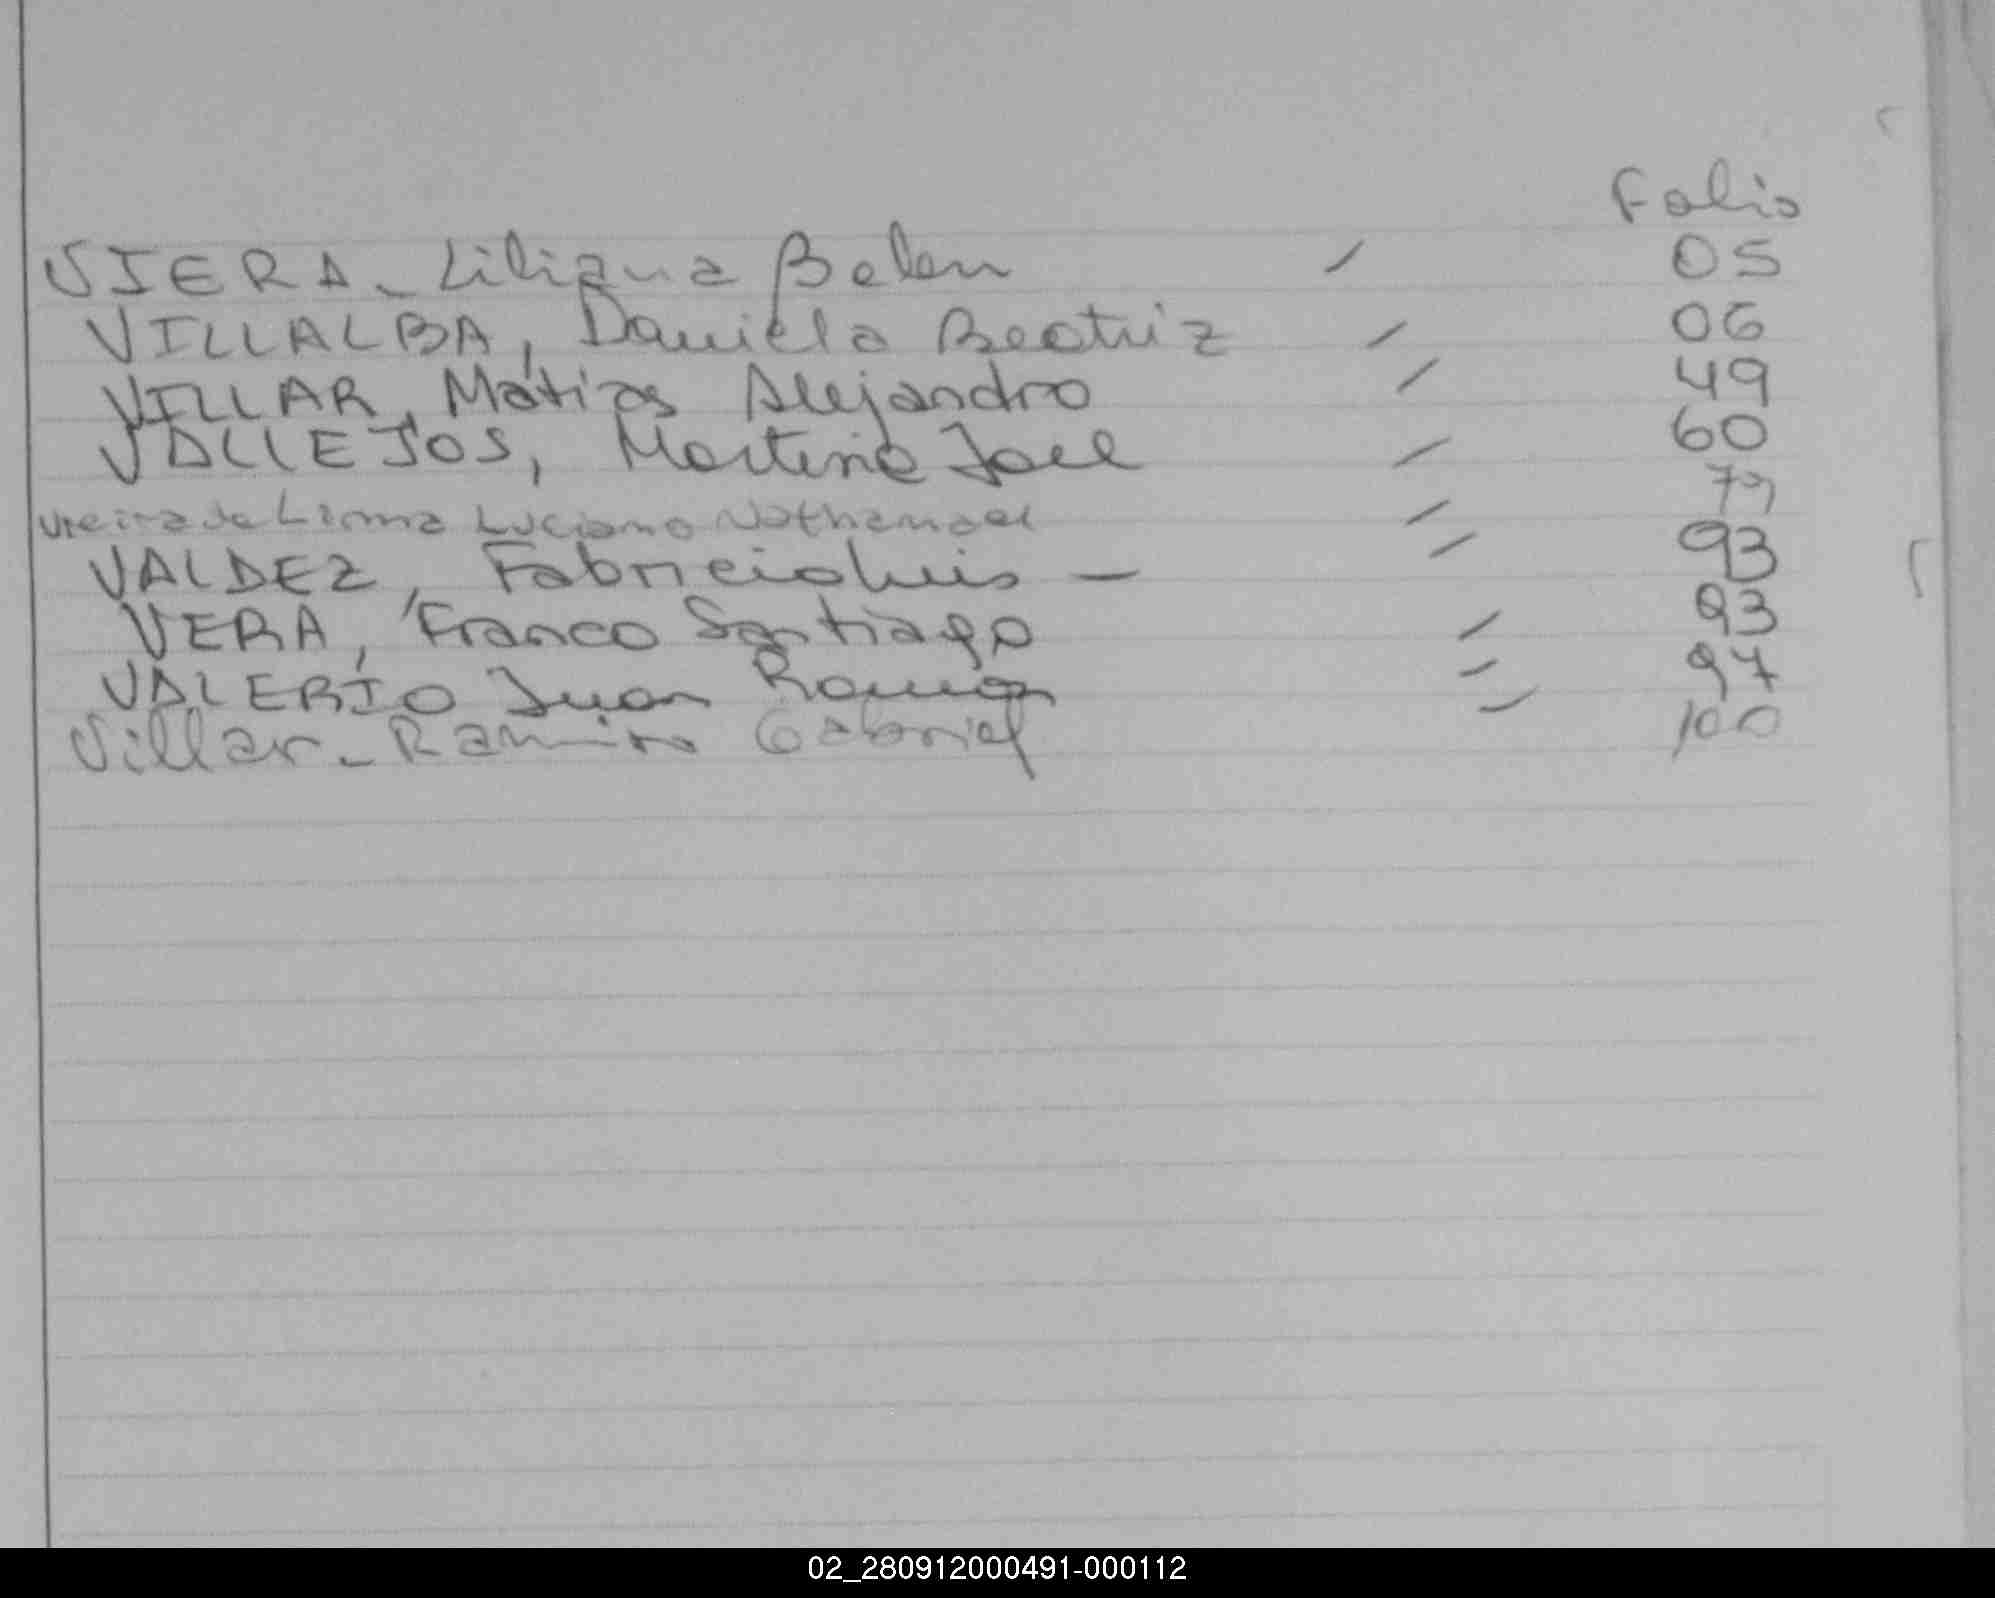 Folio
VIERA - Liliana Belen / 05
VILLALBA, Daniela Beatriz / 06
VILLAR, Matias Alejandro / 49
VALLEJOS, Martina Joel / 60
Vieira de Lima Luciano Nathanael / 79
VALDEZ, Fabricio Luis — / 93
VERA, Franco Santiago / 93
VALERIO Juan Ramon / 97
Villar - Ramiro Gabriel / 100
02_280912000491-000112